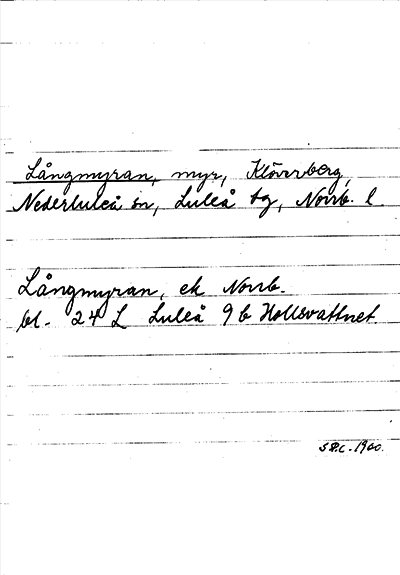 Långmyran, myr, Klöverberg,
Nederluleå sn, Luleå tg, Norrb. l.
Långmyran, ek Norrb.
bl. 24 L Luleå 9 b Hollsvattnet.
1960.